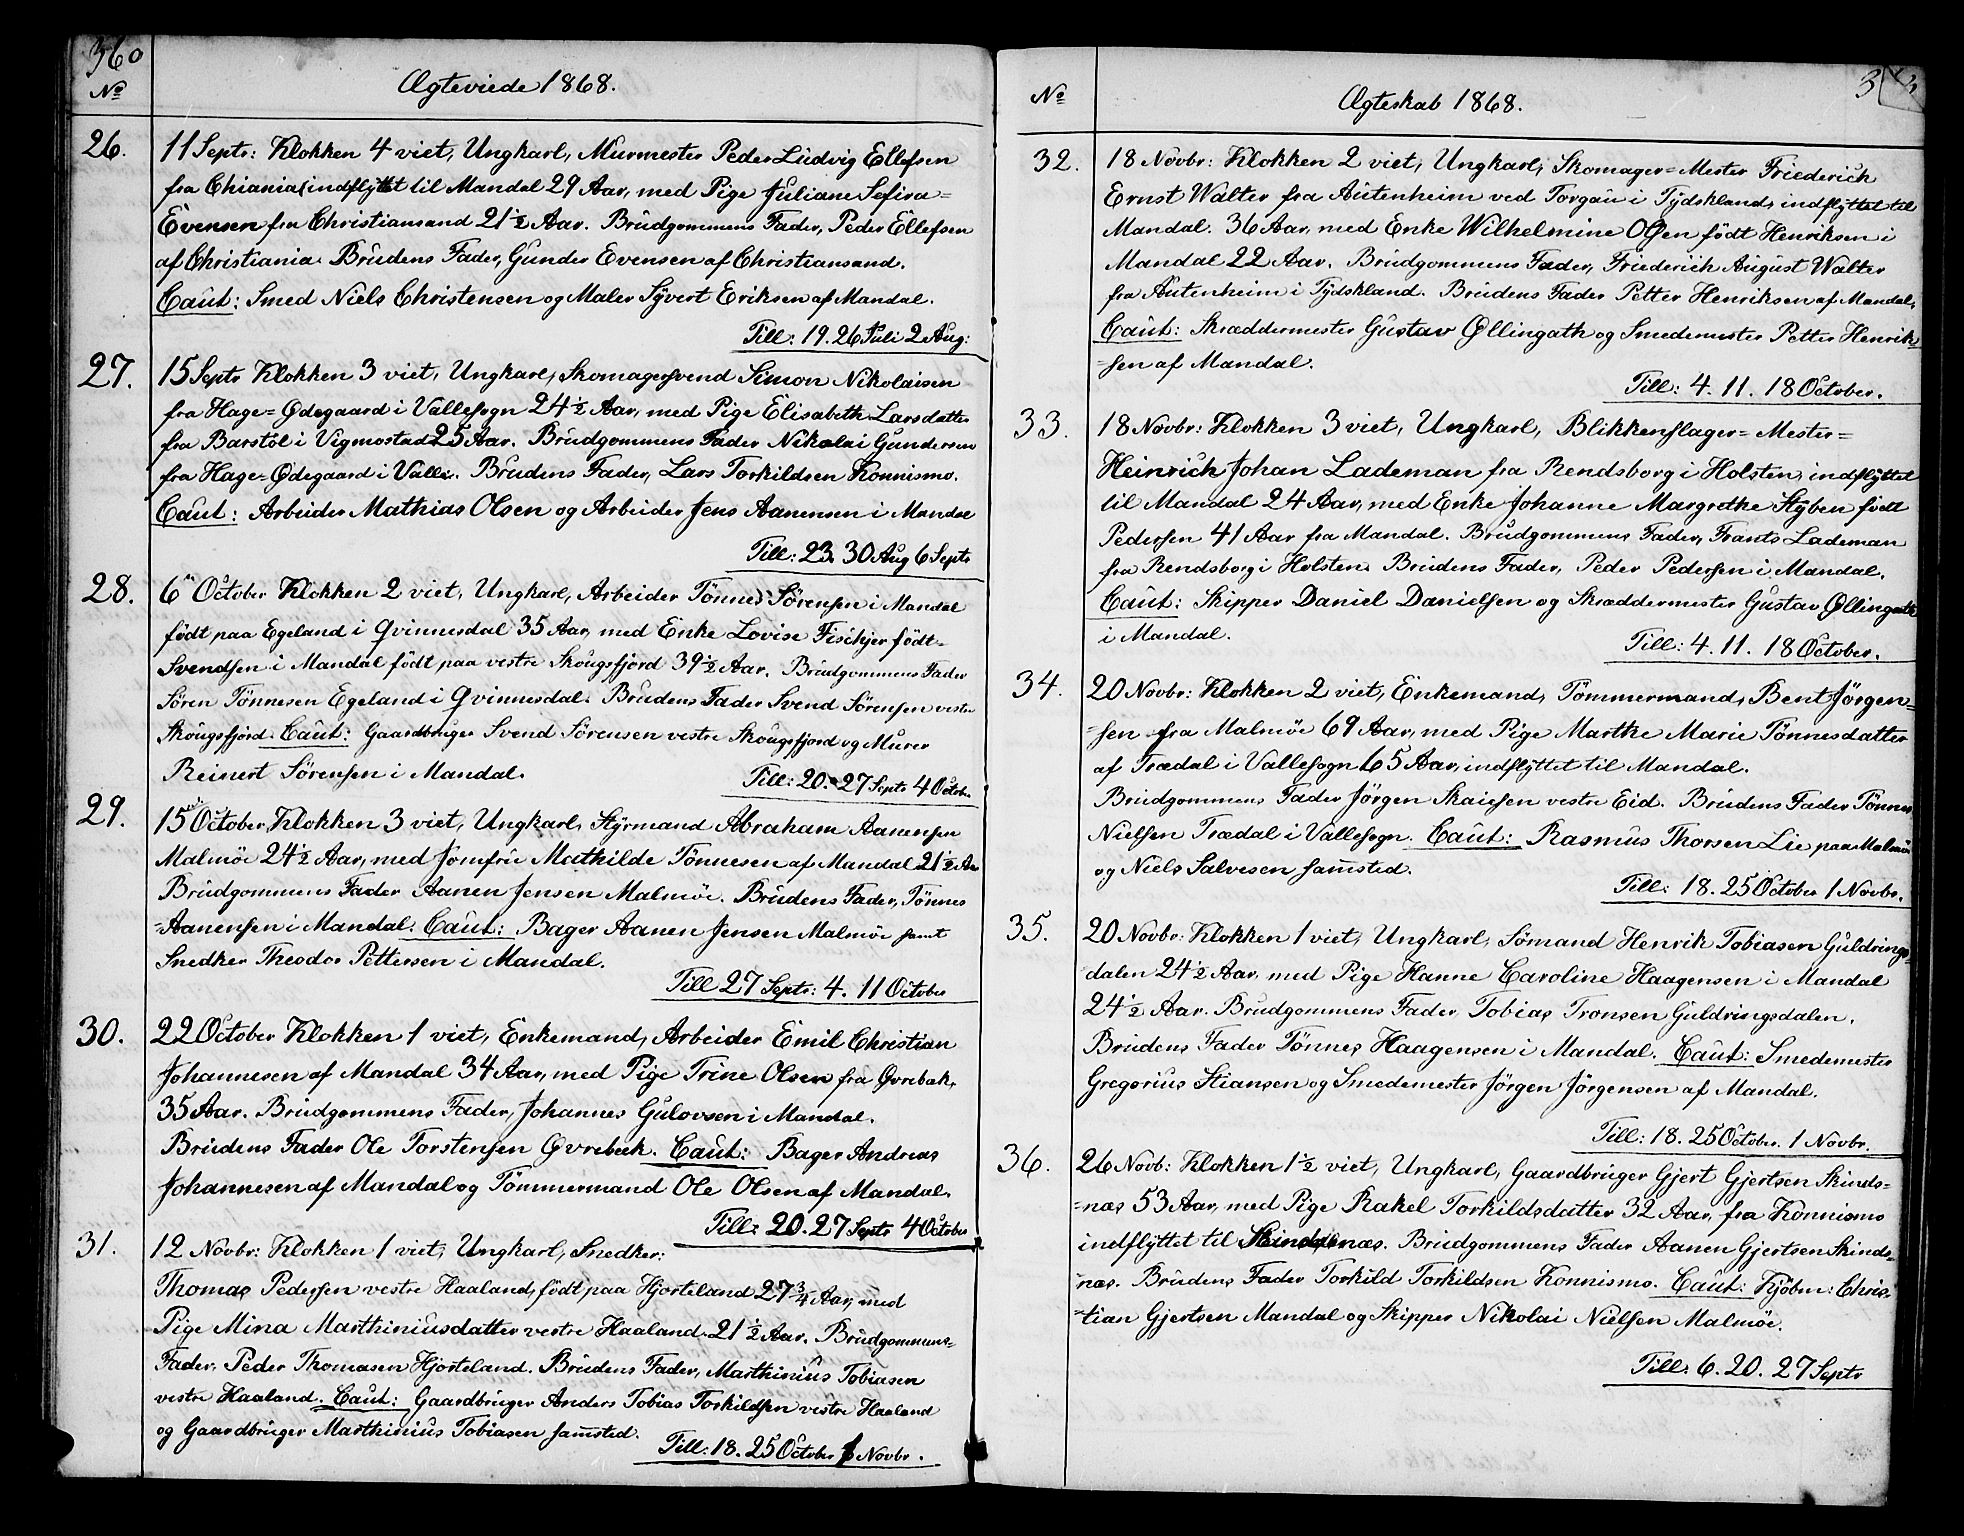 360
No
Ægteviede 1868.
26.
11 Septr: Klokken 4 viet, Ungkarl, Murmester Peder Ludvig Ellefsen
fra Chiania, indflyttet til Mandal 29 Aar, med Pige Juliane Sefira=
Evensen fra Christiansand 21½ Aar. Brudgommens Fader, Peder Ellefsen
af Christiania. Brudens Fader, Gunder Evensen af Christiansand.
Caut: Smed Niels Christensen og Maler Syvert Eriksen af Mandal.
Till: 19. 26 Juli 2 Aug:
27.
15 Septr Klokken 3 viet, Ungkarl, Skomagersvend Simon Nikolaisen
fra Hage=Ødegaard i Vallesogn 24½ Aar, med Pige Elisabeth Larsdatter
fra Barstöl i Vigmostad 25 Aar. Brudgommens Fader Nikolai Gundersen
fra Hage=Ødegaard i Valle. Brudens Fader, Lars Torkildsen Konnismo.
Caut: Arbeider Mathias Olsen og Arbeider Jens Aanensen i Mandal
Till: 23. 30 Aug 6 Septr
28.
6te October Klokken 2 viet, Ungkarl, Arbeider Tönnes Sörensen i Mandal
födt paa Egeland i Qvinnesdal 35 Aar, med Enke Lovise Fischjer födt=
Svendsen i Mandal födt paa vestre Skougsfjord 39½ Aar. Brudgommens Fader
Sören Tönnesen Egeland i Qvinnesdal. Brudens Fader Svend Sörensen vestre
Skougsfjord. Caut: Gaardbruger Svend Sörensen vestre Skougsfjord og Murer
Reinert Sörensen i Mandal.
Till: 20. 27 Septr 4 Octobr.
29.
15de October, Klokken 3 viet, Ungkarl, Styrmand Abraham Aanensen
Malmöe 24½ Aar, med Jomfrue Mathilde Tönnesen af Mandal 21½ Aar
Brudgommens Fader Aanen Jensen Malmöe. Brudens Fader, Tönnes
=Aanensen i Mandal. Caut: Bager Aanen Jensen Malmöe samt
Snedker Theodor Pettersen i Mandal.
Till 27 Septr: 4. 11 October
30.
22 October Klokken 1 viet, Enkemand, Arbeider Emil Christian
Johannesen af Mandal 34 Aar, med Pige Trine Olsen fra Øvrebæk,
35 Aar. Brudgommens Fader, Johannes Gulovsen i Mandal.
Brudens Fader Ole Torstensen Øvrebæk. Caut: Bager Andreas
Johannesen af Mandal og Tömmermand Ole Olsen af Mandal.
Till: 20. 27 Septr 4 October
31.
12 Novbr: Klokken 1 viet, Ungkarl, Snedker:
Thomas Pedersen vestre Haaland, födt paa Hjorteland 27¾ Aar, med
Pige Mina Marthiniusdatter vestre Haaland 21½ Aar. Brudgommens=
Fader, Peder Thomasen Hjorteland. Brudens Fader, Marthinius Tobiasen
vestre Haaland. Caut: Gaardbruger Anders Tobias Torkildsen vestre Haaland
og Gaardbruger Marthinius Tobiasen samsted.
Till: 18. 25 October 1 Novbr.
No
Ægteskab 1868.
32.
18 Novbr: Klokken 2 viet, Ungkarl, Skomager=Mester Friederich
Ernst Walter fra Autenheim ved Torgau i Tydskland, indflyttet til
Mandal. 36 Aar, med Enke Wilhelmine Olsen födt Henriksen i
Mandal 22 Aar. Brudgommens Fader, Friederich August Walter
fra Autenheim i Tydskland. Brudens Fader Petter Henriksen af Mandal,
Caut: Skræddermester Gustav Øllingath og Smedemester Petter Henrik=
=sen af Mandal.
Till: 4. 11. 18 October.
33.
18 Novbr: Klokken 3 viet, Ungkarl, Blikkenslager=Mester=
Heinrich Johan Lademan fra Rendsborg i Holsten, indflyttet
til Mandal 24 Aar, med Enke Johanne Margrethe Styben födt
Pedersen 41 Aar fra Mandal. Brudgommens Fader, Frants Lademan
fra Rendsborg i Holsten. Brudens Fader, Peder Pedersen i Mandal.
Caut: Skipper Daniel Danielsen og Skræddermester Gustav Øllingath
i Mandal.
Till: 4. 11. 18 October.
34.
20 Novbr: Klokken 2 viet, Enkemand, Tömmermand, Bent Jörgen=
=sen fra Malmöe 69 Aar, med Pige Marthe Marie Tönnesdatter
af Trædal i Vallesogn 65 Aar, indflyttet til Mandal.
Brudgommens Fader Jörgen Skaiesen vestre Eid. Brudens Fader Tönnes
Nielsen Trædal i Vallesogn. Caut: Rasmus Thorsen Lie paa Malmöe
og Niels Salvesen samsted.
Till: 18. 25 October 1 Novbr.
35.
20 Novbr: Klokken 1 viet, Ungkarl, Sömand Henrik Tobiasen Guldrings=
dalen 24½ Aar, med Pige Hanne Caroline Haagensen i Mandal
24½ Aar. Brudgommens Fader, Tobias Tronsen Guldringsdalen.
Brudens Fader Tönnes Haagensen i Mandal. Caut: Smedemester
Gregorius Stiansen og Smedemester Jörgen Jörgensen af Mandal.
Till: 18. 25 October. 1 Novbr.
36.
26 Novb: Klokken 1½ viet, Ungkarl, Gaardbruger Gjert Gjertsen Skinds=
=næs 53 Aar, med Pige Rakel Torkildsdatter 32 Aar, fra Konnismo
indflyttet til Skindsnæs. Brudgommens Fader Aanen Gjertsen Skinds=
næs. Brudens Fader Torkild Torkildsen Konnismo. Caut: Kjöbm: Chris=
=tian Gjertsen Mandal og Skipper Nikolai Nielsen Malmöe.
Till: 6. 20. 27 Septr